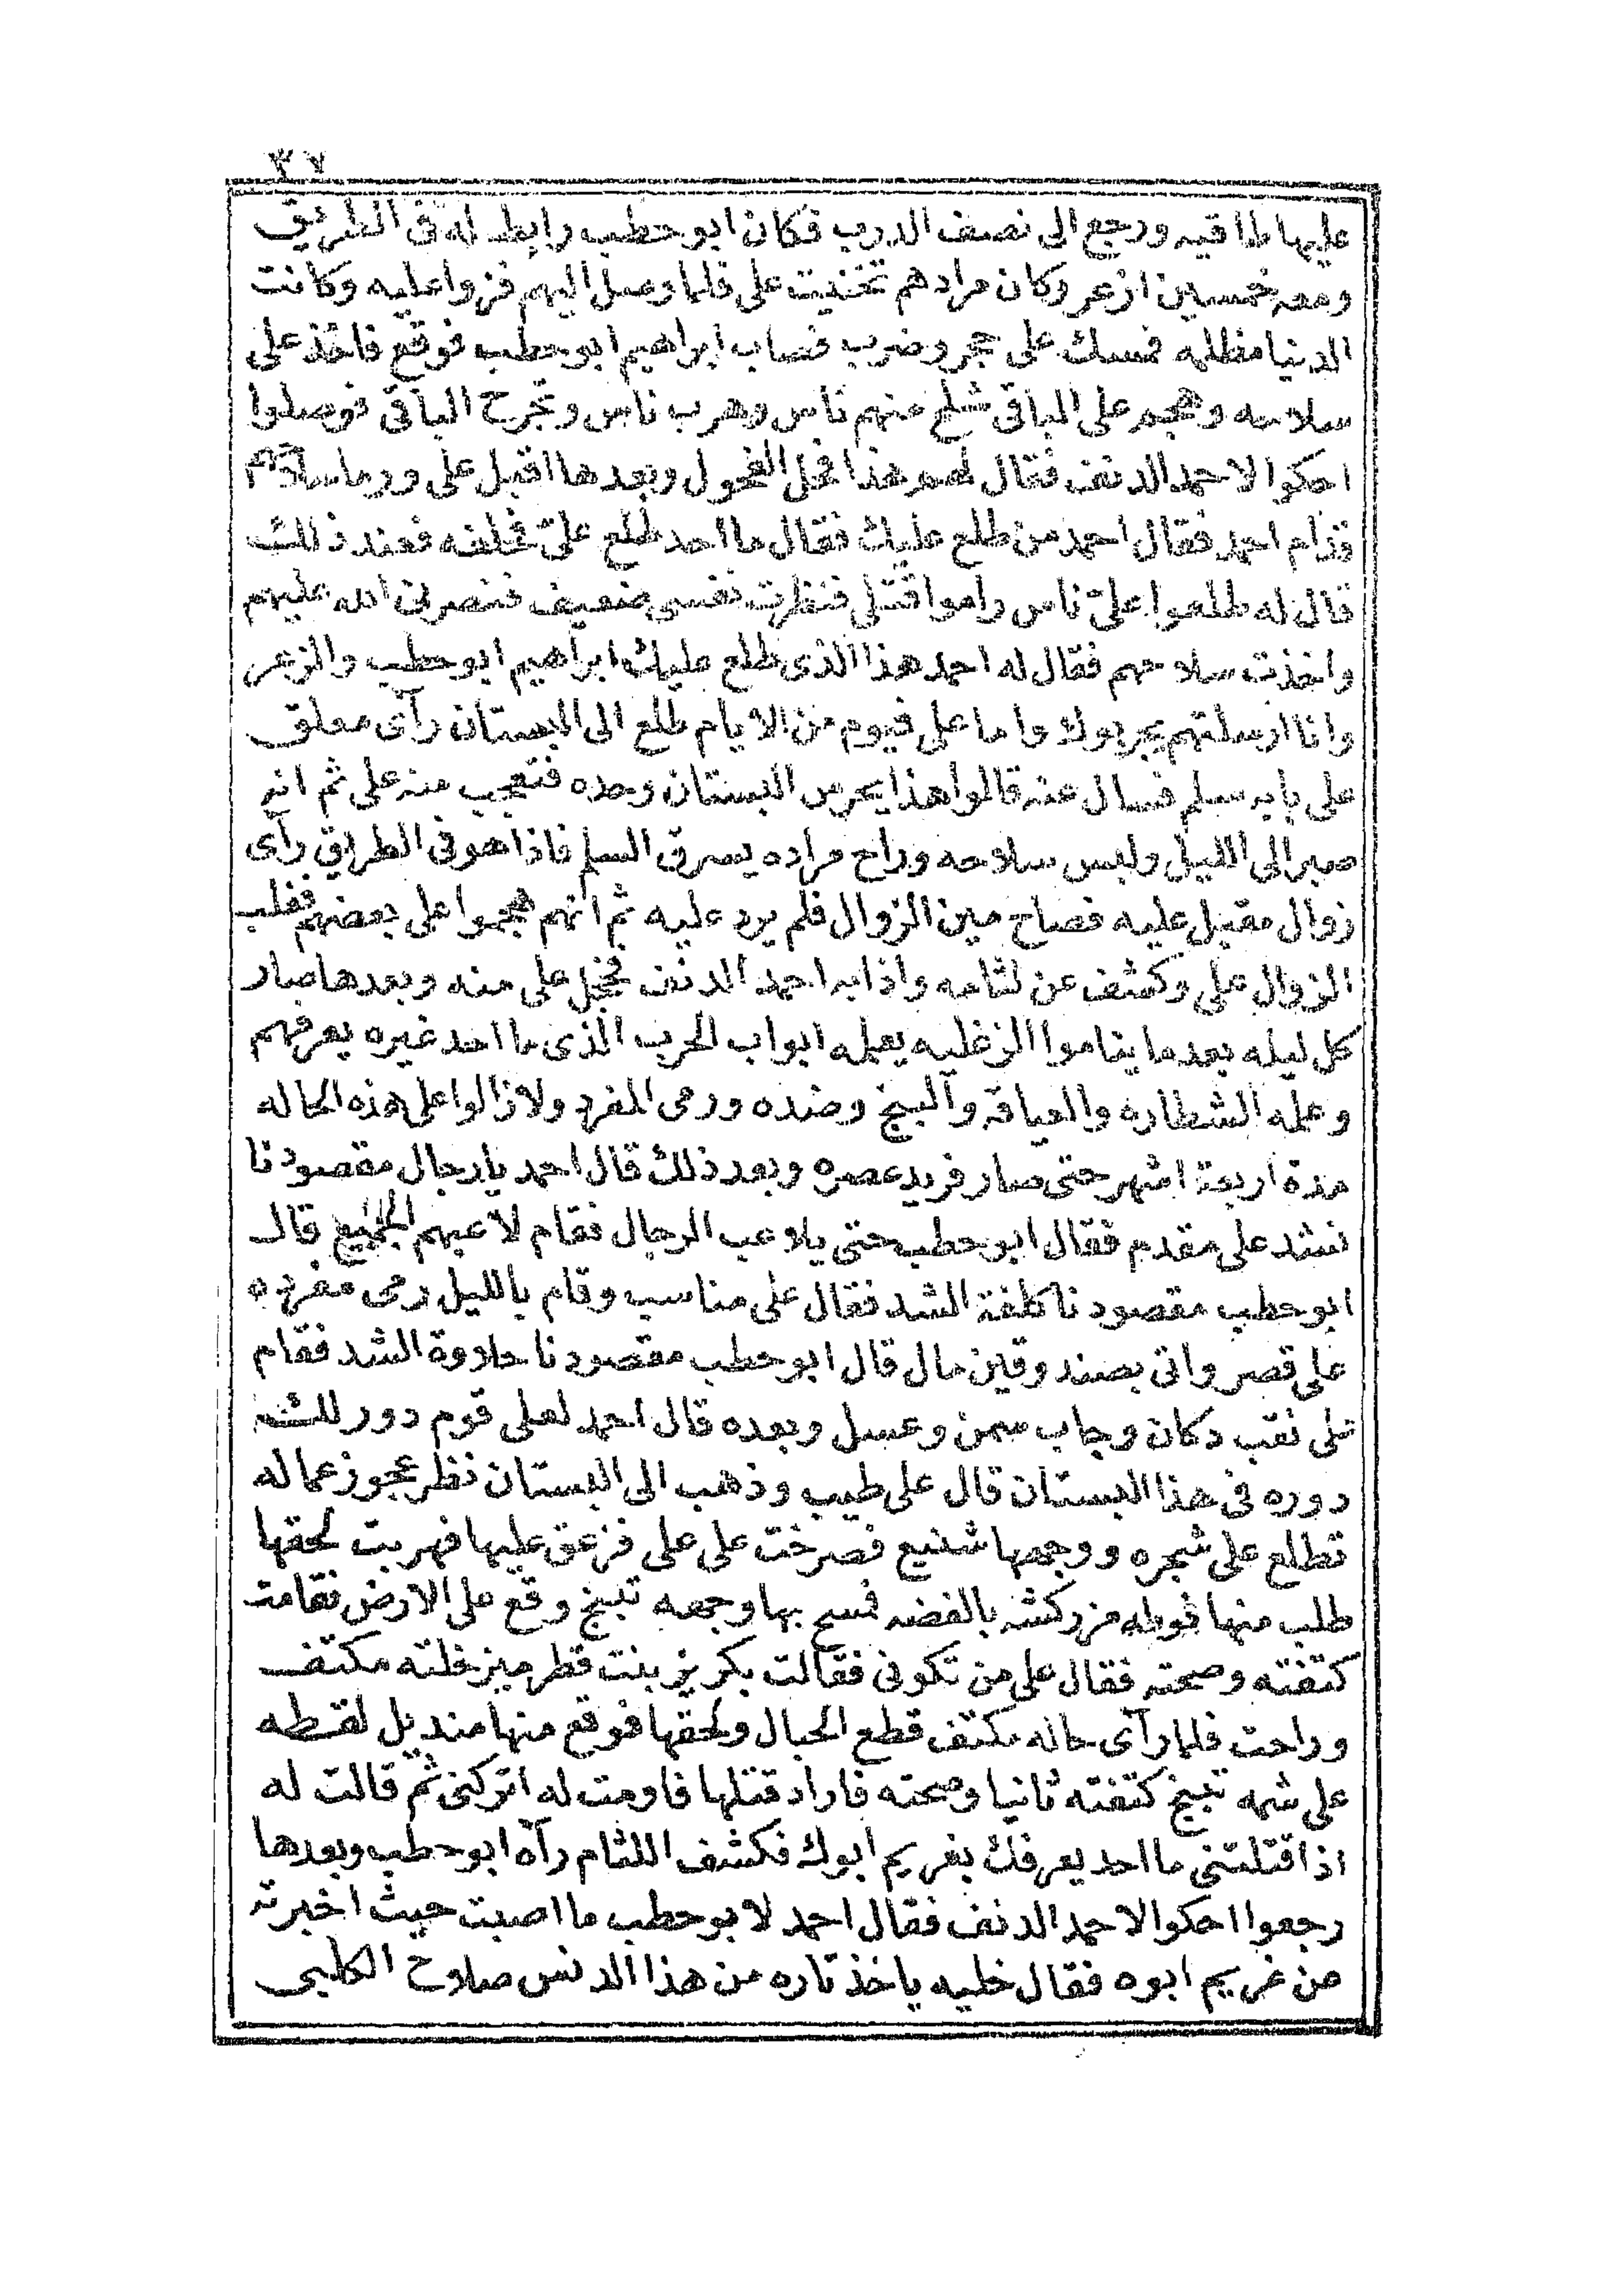 ٣٧
عليها طاقيه ورجع الى نصف الدرب فكان ابو حطب رابط له فى الطريق
ومعه خمسين ازعر وكان مرادهم تخنيت على فلما وصل اليهم فزوا عليه وكانت
الدنيا مظلمه فمسك على حجر وضرب فصاب ابراهيم ابو حطب فوقع فاخذ على
سلاحه وهجم على الباقى شلح منهم ناس وهرب ناس وتجرح الباقى فوصلوا
احكوا لاحمد الدنف فقال لهم هذا فحل الفحول وبعدها اقبل على ورما سلاحهم
قدام احمد فقال احمد من طلع عليك فقال ما احد طلع علىّ فحلفه فعند ذلك
قال له طلعوا علىّ ناس راموا قتلى فنظرت نفسى ضعيف فنصرنى الله عليهم
واخذت سلاحهم فقال له احمد هذا الذى طلع عليك ابراهيم ابو حطب والزعر
وانا ارسلتهم يجربوك واما على فيوم من الايام طلع الى البستان رآى معلق
على بابه سلم فسال عنه قالوا هذا يحرس البستان وحده فتعجب منه على ثم انه
صبر الى الليل ولبس سلاحه وراح مراده يسرق السلم فاذا هو فى الطريق رآى
زوال مقبل عليه فصاح مين الزوال فلم يرد عليه ثم انهم هجموا على بعضهم فغلب
الزوال على وكشف عن لثامه واذا به احمد الدنف فخجل على منه وبعدها صار
كل ليله بعد ما يناموا الزغليه يعمله ابواب الحرب الذى ما احد غيره يعرفهم
وعلمه الشطاره والعياقه والبنج وضده ورمى المفرد ولا زالوا على هذه الحاله
مدة اربعة اشهر حتى صار فريد عصره وبعد ذلك قال احمد يا رجال مقصودنا
نشد على مقدم فقال ابو حطب حتى يلاعب الرجال فقام لاعبهم الجميع قال
ابو حطب مقصودنا كلفة الشد فقال على مناسب وقام بالليل رمى مفرده
على قصر واتى بصندوقين مال قال ابو حطب مقصودنا حلاوة الشد فقام
على نقب دكان وجاب سمن وعسل وبعده قال احمد لعلى قوم دور للشد
دوره فى هذا البستان قال على طيب وذهب الى البستان نظر عجوز عماله
تطلع على شجره ووجهها شنيع فصرخت على على فزعق عليها فهربت لحقها
طلب منها فوطه مزركشه بالفضه فمسح بها وجهه تبنج وقع على الارض فقامت
كتفته وصحته فقال على من تكونى فقالت بكريز بنت قطرميز خلته مكتف
وراحت فلما رآى حاله مكتف قطع الحبال ولحقها فوقع منها منديل لقطه
على شمه تبنج كتفته ثانيا وصحته فاراد قتلها فاومت له اتركنى ثم قالت له
اذا قتلتنى ما احد يعرفك بغريم ابوك فكشف اللثام رآه ابو حطب وبعدها
رجعوا احكوا لاحمد الدنف فقال احمد لابو حطب ما اصبت حيث اخبرته
من غريم ابوه فقال خليه ياخذ تاره من هذا الدنس صلاح الكلبى